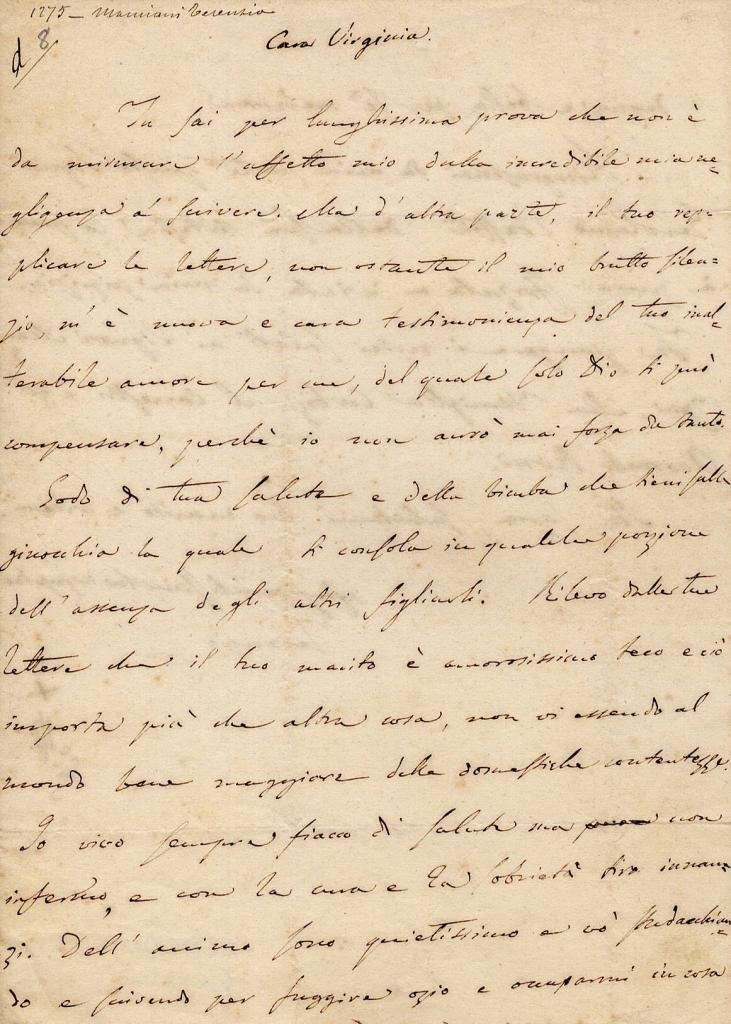 1275 - Mamiani Terenzio
8
Cara Virginia.
Tu sai per lunghissima prova che non è
da misurare l'affetto mio dalla incredibile mia ne=
gligenza a' scrivere. Ma d'altra parte, il tuo rep=
plicare le lettere, non ostante il mio brutto silen=
zio, m'è nuova e cara testimonianza del tuo inal=
terabile amore per me, del quale solo Dio ti può
compensare, perchè io non avrò mai forza da tanto.
Godo di tua salute e della bimba che tieni sulle
ginocchia la quale ti consola in qualche porzione
dell'assenza degli altri figliuoli. Rilevo dalle tue
lettere che il tuo marito è amorosissimo teco e ciò
importa più che altra cosa, non vi essendo al
mondo bene maggiore delle domestiche contentezze.
Io vivo sempre fiacco di salute ma non
infermo, e con la cura e la sobrietà tiro innan=
zi. Dell'animo sono quietissimo e vo' studacchian=
do e scrivendo per fuggire ozio e occuparmi in cosa